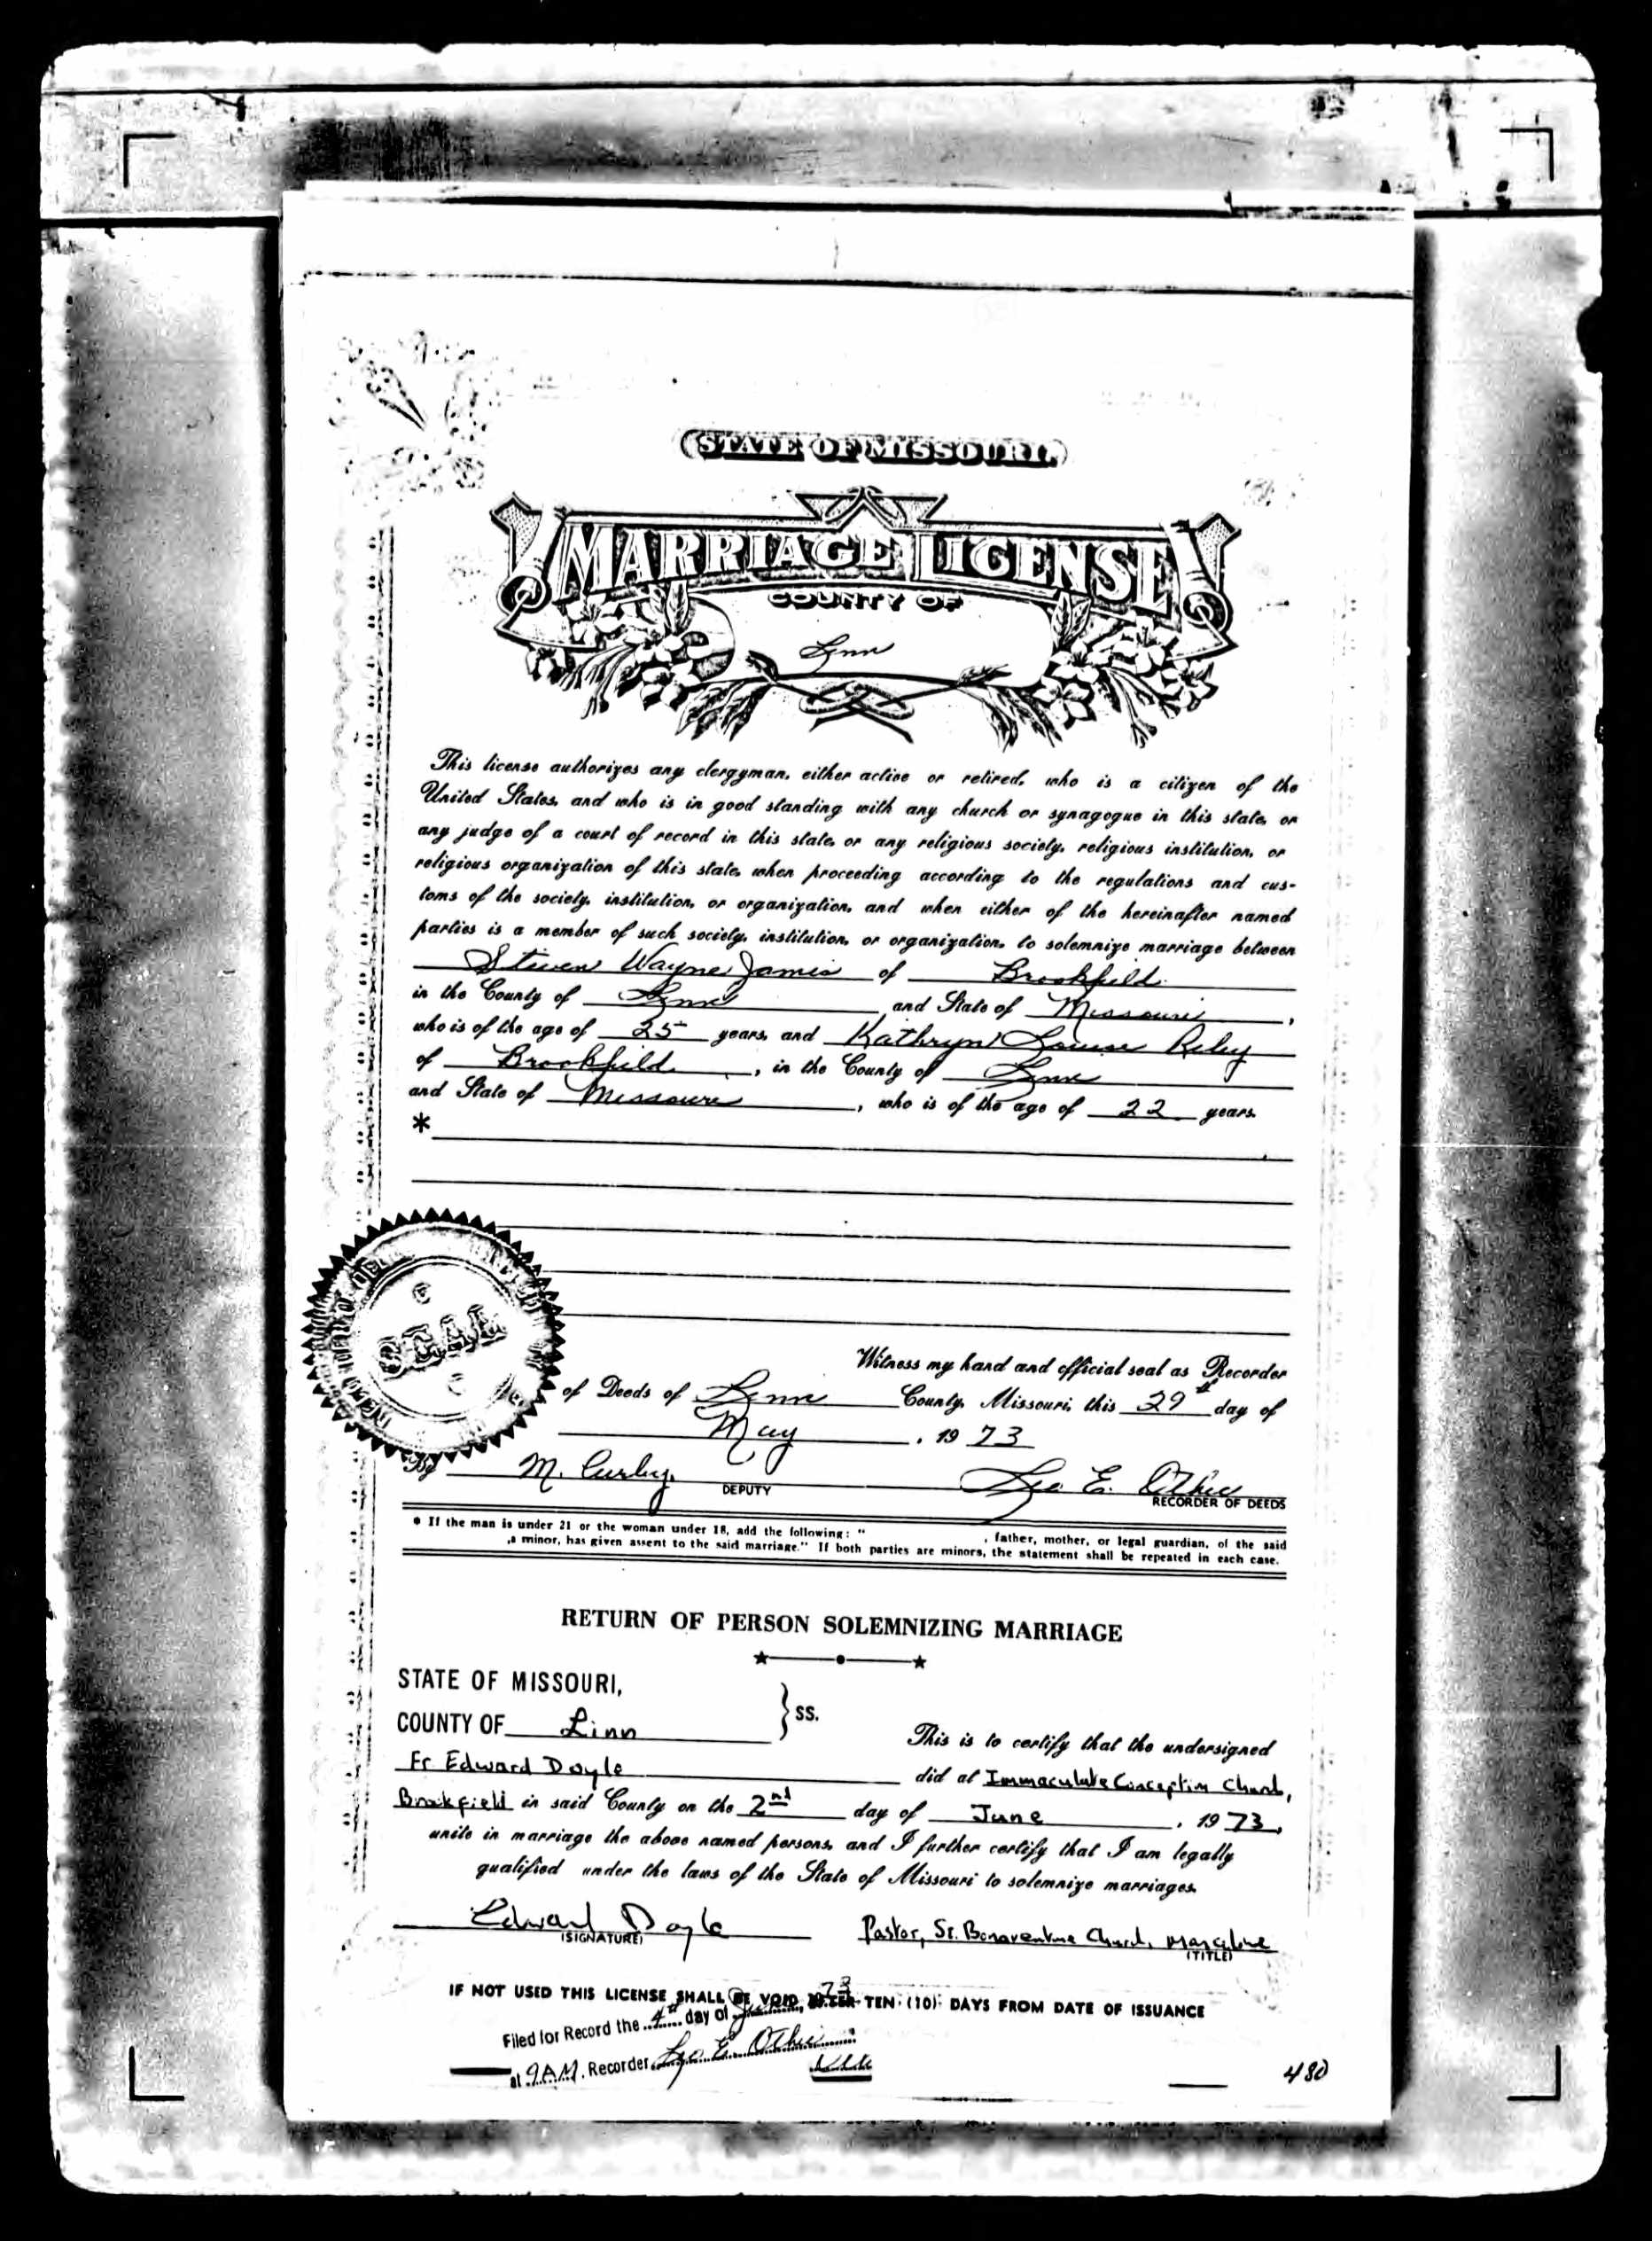 STATE OF MISSOURI
MARRIAGE LICENSE
COUNTY OF
Linn
This license authorizes any clergyman, either active or retired, who is a citizen of the
United States, and who is in good standing with any church or synagogue in this state, or
any judge of a court of record in this state, or any religious society, religious institution, or
religious organization of this state, when proceeding according to the regulations and cus-
toms of the society, institution, or organization, and when either of the hereinafter named
parties is a member of such society, institution, or organization, to solemnize marriage between
Steven Wayne James of Brookfield
in the County of Linn and State of Missouri,
who is of the age of 25 years, and Kathryn Louise Riley
of Brookfield, in the County of Linn
and State of Missouri, who is of the age of 22 years.
*
SEAL
Witness my hand and official seal as Recorder
of Deeds of Linn County, Missouri, this 29th day of
May, 1973
By M. Curby, DEPUTY
Leo E. RECORDER OF DEEDS
* If the man is under 21 or the woman under 18, add the following: " , father, mother, or legal guardian, of the said
,a minor, has given assent to the said marriage." If both parties are minors, the statement shall be repeated in each case.
RETURN OF PERSON SOLEMNIZING MARRIAGE
STATE OF MISSOURI,
COUNTY OF Linn } SS.
This is to certify that the undersigned
Fr Edward Doyle did at Immaculate Conception Church,
Brookfield in said County on the 2nd day of June, 1973,
unite in marriage the above named persons, and I further certify that I am legally
qualified under the laws of the State of Missouri to solemnize marriages.
Edward Doyle Pastor, St. Bonaventure Church, Marceline
(SIGNATURE) (TITLE)
IF NOT USED THIS LICENSE SHALL BE VOID AFTER TEN (10) DAYS FROM DATE OF ISSUANCE
Filed for Record the 4th day of June, 1973
at 9 A.M. Recorder Leo E.
480